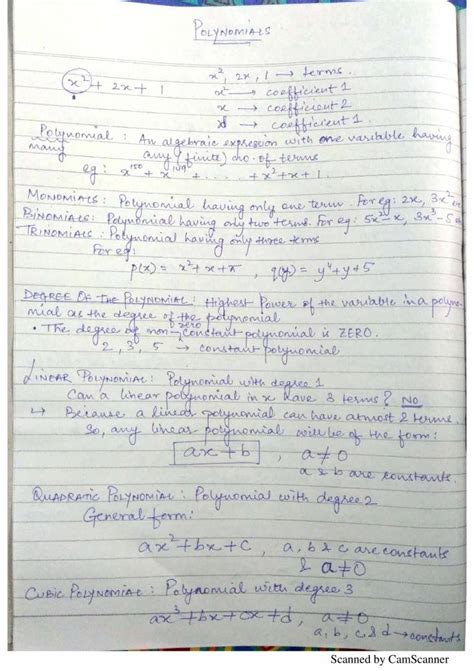 POLYNOMIALS
x² + 2x + 1
x², 2x, 1 → terms.
x² → coefficient 1
x → coefficient 2
→ coefficient 1.
Polynomial : An algebraic expression with one variable having
many any (finite) no. of terms
eg : + + .... + x² + x + 1.
MONOMIALS : Polynomial having only one term. For eg : 2x, 3x²
BINOMIALS : Polynomial having only two terms. For eg : 5x²-x, 3x³-5
TRINOMIALS : Polynomial having only three terms
For eg :
p(x) = x² + x + π, q(y) = y⁴ + y + 5
DEGREE OF THE POLYNOMIAL : Highest Power of the variable in a polyno-
mial as the degree of the polynomial
• The degree of non-zero constant polynomial is ZERO.
2, 3, 5 → constant polynomial
LINEAR POLYNOMIAL : Polynomial with degree 1
Can a linear polynomial in x have 3 terms? NO
↳ Because a linear polynomial can have atmost 2 terms.
So, any linear polynomial will be of the form :
ax + b, a ≠ 0
a & b are constants.
QUADRATIC POLYNOMIAL : Polynomial with degree 2
General form :
ax² + bx + c, a, b & c are constants
& a ≠ 0
CUBIC POLYNOMIAL : Polynomial with degree 3
ax³ + bx + cx + d, a ≠ 0
a, b, c & d → constants
Scanned by CamScanner